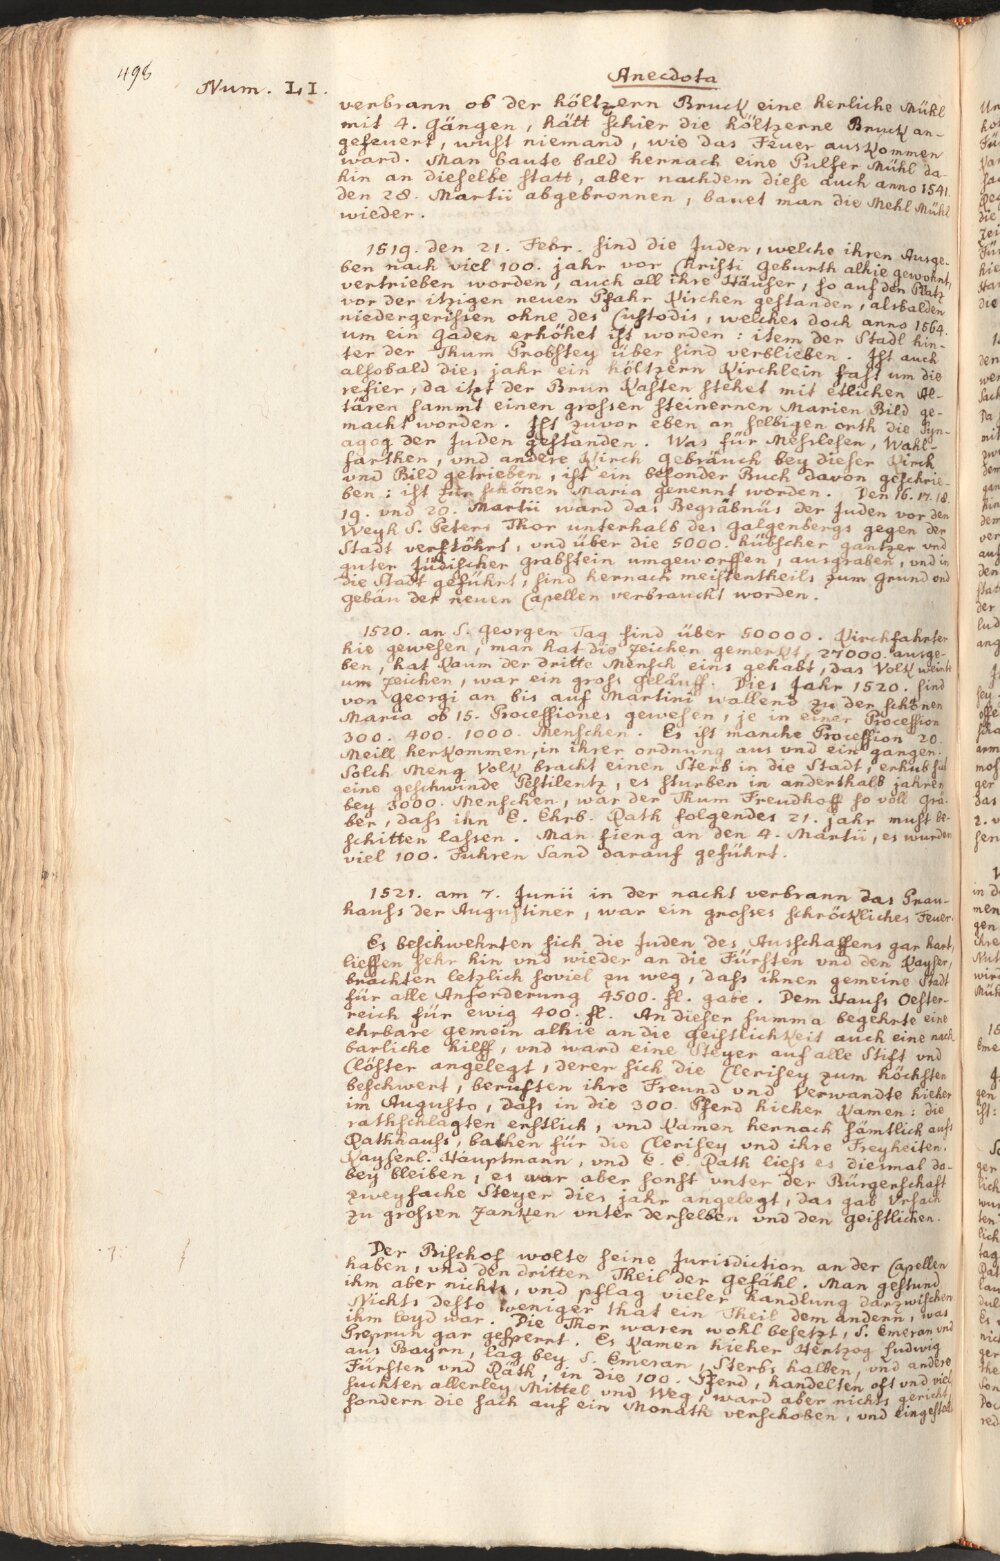 498
Num. LI.
Anecdota
verbrann ob der höltzern Bruck eine herliche Mühl
mit 4. Gängen, hätt schier die höltzerne Bruck an-
gefeuert, wust niemand, wie das Feuer auskommen
ward. Man baute bald hernach eine Pulfer Mühl da-
hin an dieselbe statt, aber nachdem diese auch anno 1541.
den 28. Martii abgebronnen, bauet man die Mehl Mühl
wieder.
1519. den 21. Febr. sind die Juden, welche ihren Ausge-
ben nach viel 100. jahr vor Christi Geburth alhie gewohnt,
vertrieben worden, auch all ihre Häuser, so auf den Platz
vor der itzigen neuen Pfahr Kirchen gestanden, alsbalden
niedergerissen ohne des Custodis, welches doch anno 1564.
um ein Gaden erhöhet ist worden: item der Stadl hin-
ter der Thum Probstey über sind verblieben. Ist auch
alsobald dies jahr ein höltzern Kirchlein fast um die
refier, da itzt der Brun Kasten stehet mit etlichen Al-
tären sammt einen grossen steinernen Marien Bild ge-
macht worden. Ist zuvor eben an selbigen orth die Syn-
agog der Juden gestanden. Was für Messlesen, Wahl-
farthen, und andere Kirch Gebräuch bey dieser Kirch
und Bild getrieben, ist ein besonder Buch davon geschrie-
ben: ist zur schönen Maria genennt worden. Den 16. 17. 18.
19. vnd 20. Martii ward das Begräbnüs der Juden vor den
Weyh S. Peters Thor unterhalb des Galgenbergs gegen der
Stadt verstöhrt, vnd über die 5000. hübscher gantzer vnd
guter Jüdischer Grabstein umgeworffen, ausgraben, vnd in
die Stadt geführt, sind hernach meistentheils zum Grund vnd
gebäu der neuen Capellen verbraucht worden.
1520. an S. Georgen Tag sind über 50000. Kirchfahrter
hie gewesen, man hat die Zeichen gemerkt, 27000. ausge-
ben, hat kaum der dritte Mensch eins gehabt, das Volk weinte
um Zeichen, war ein gross geläuff. Dies Jahr 1520. sind
von Georgi an bis auf Martini wallend zu der schönen
Maria ob 15. Processiones gewesen, je in einer Procession
300. 400. 1000. Menschen. Es ist manche Procession 20.
Meill herkommen, in ihrer ordnung aus vnd ein gangen.
Solch Meng Volk bracht einen Sterb in die Stadt, erhub sich
eine geschwinde Pestilentz, es sturben in anderthalb jahren
bey 3000. Menschen, war der Thum Freudhoff so voll Grä-
ber, dass ihn E. Ehrb. Rath folgendes 21. jahr must be-
schitten lassen. Man fieng an den 4. Martii, es wurden
viel 100. Fuhren Sand darauf geführt.
1521. am 7. Junii in der nacht verbrann das Brau-
hauss der Augustiner, war ein grosses schröckliches Feuer.
Es beschwehrten sich die Juden des Ausschaffens gar hart,
lieffen sehr hin vnd wieder an die Fürsten vnd den Kayser,
brachten letzlich soviel zu weg, dass ihnen gemeine Stadt
für alle Anforderung 4500. fl. gabe. Dem Hauss Oester-
reich für ewig 400. fl. An dieser summa begehrte eine
ehrbare gemein alhie an die Geistlichkeit auch eine nach
barliche hilff, vnd ward eine Steyer auf alle Stift vnd
Clöster angelegt, derer sich die Clerisey zum höchsten
beschwert, berufften ihre Freund vnd Verwandte hieher
im Augusto, dass in die 300. Pferd hieher kamen: die
rathschlagten erstlich, vnd kamen hernach sämtlich aufs
Rathhauss, bathen für die Clerisey vnd ihre Freyheiten.
Kayserl. Hauptmann, vnd E. E. Rath liess es diesmal da-
bey bleiben, es war aber sonst vnter der Bürgerschaft
zweyfache Steyer dies jahr angelegt, das gab Vrsach
zu grossen Zanken vnter derselben vnd den geistlichen.
Der Bischof wolte seine Jurisdiction an der Capellen
haben, vnd den dritten Theil der Gefähl. Man gestund
ihm aber nichts, vnd pflag vieler handlung darzwischen
Nichts desto weniger that ein Theil dem andern, was
ihm leyd war. Die Thor waren wohl besetzt, S. Emeran vnd
Preprun gar gesperrt. Es kamen hieher Hertzog Ludwig
aus Bayrn, lag bey S. Emeran, Sterbs halben, vnd andere
Fürsten vnd Räth, in die 100. Pferd, handelten oft vnd viel,
suchten allerley Mittel vnd Weg, ward aber nichts gericht,
sondern die sach auf ein Monath verschoben, vnd eingestalt